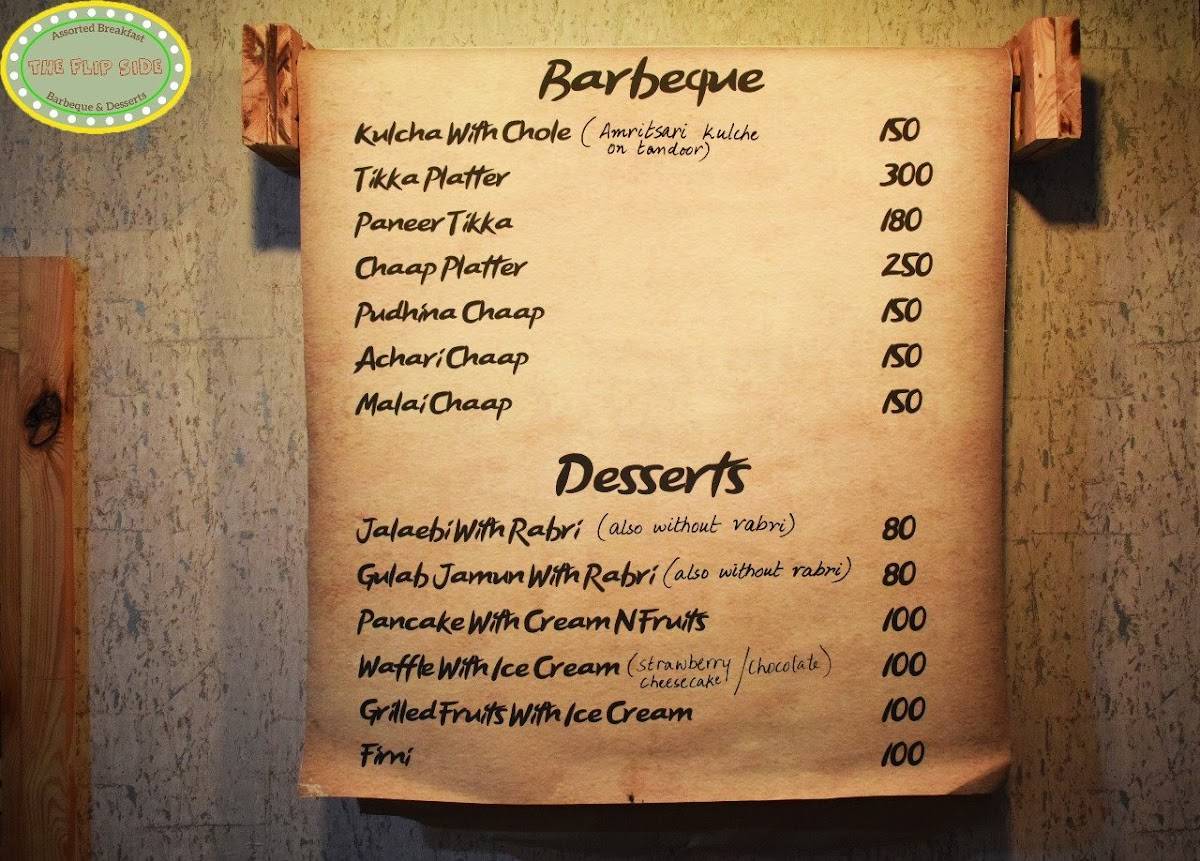 Assorted Breakfast
THE FLIP SIDE
Barbeque & Desserts
Barbeque
Kulcha With Chole (Amritsari kulche 150
on tandoor)
Tikka Platter 300
Paneer Tikka 180
Chaap Platter 250
Pudhina Chaap 150
Achari Chaap 150
Malai Chaap 150
Desserts
Jalaebi With Rabri (also without rabri) 80
Gulab Jamun With Rabri (also without rabri) 80
Pancake With Cream N Fruits 100
Waffle With Ice Cream (strawberry / chocolate) 100
cheesecake
Grilled Fruits With Ice Cream 100
Firni 100